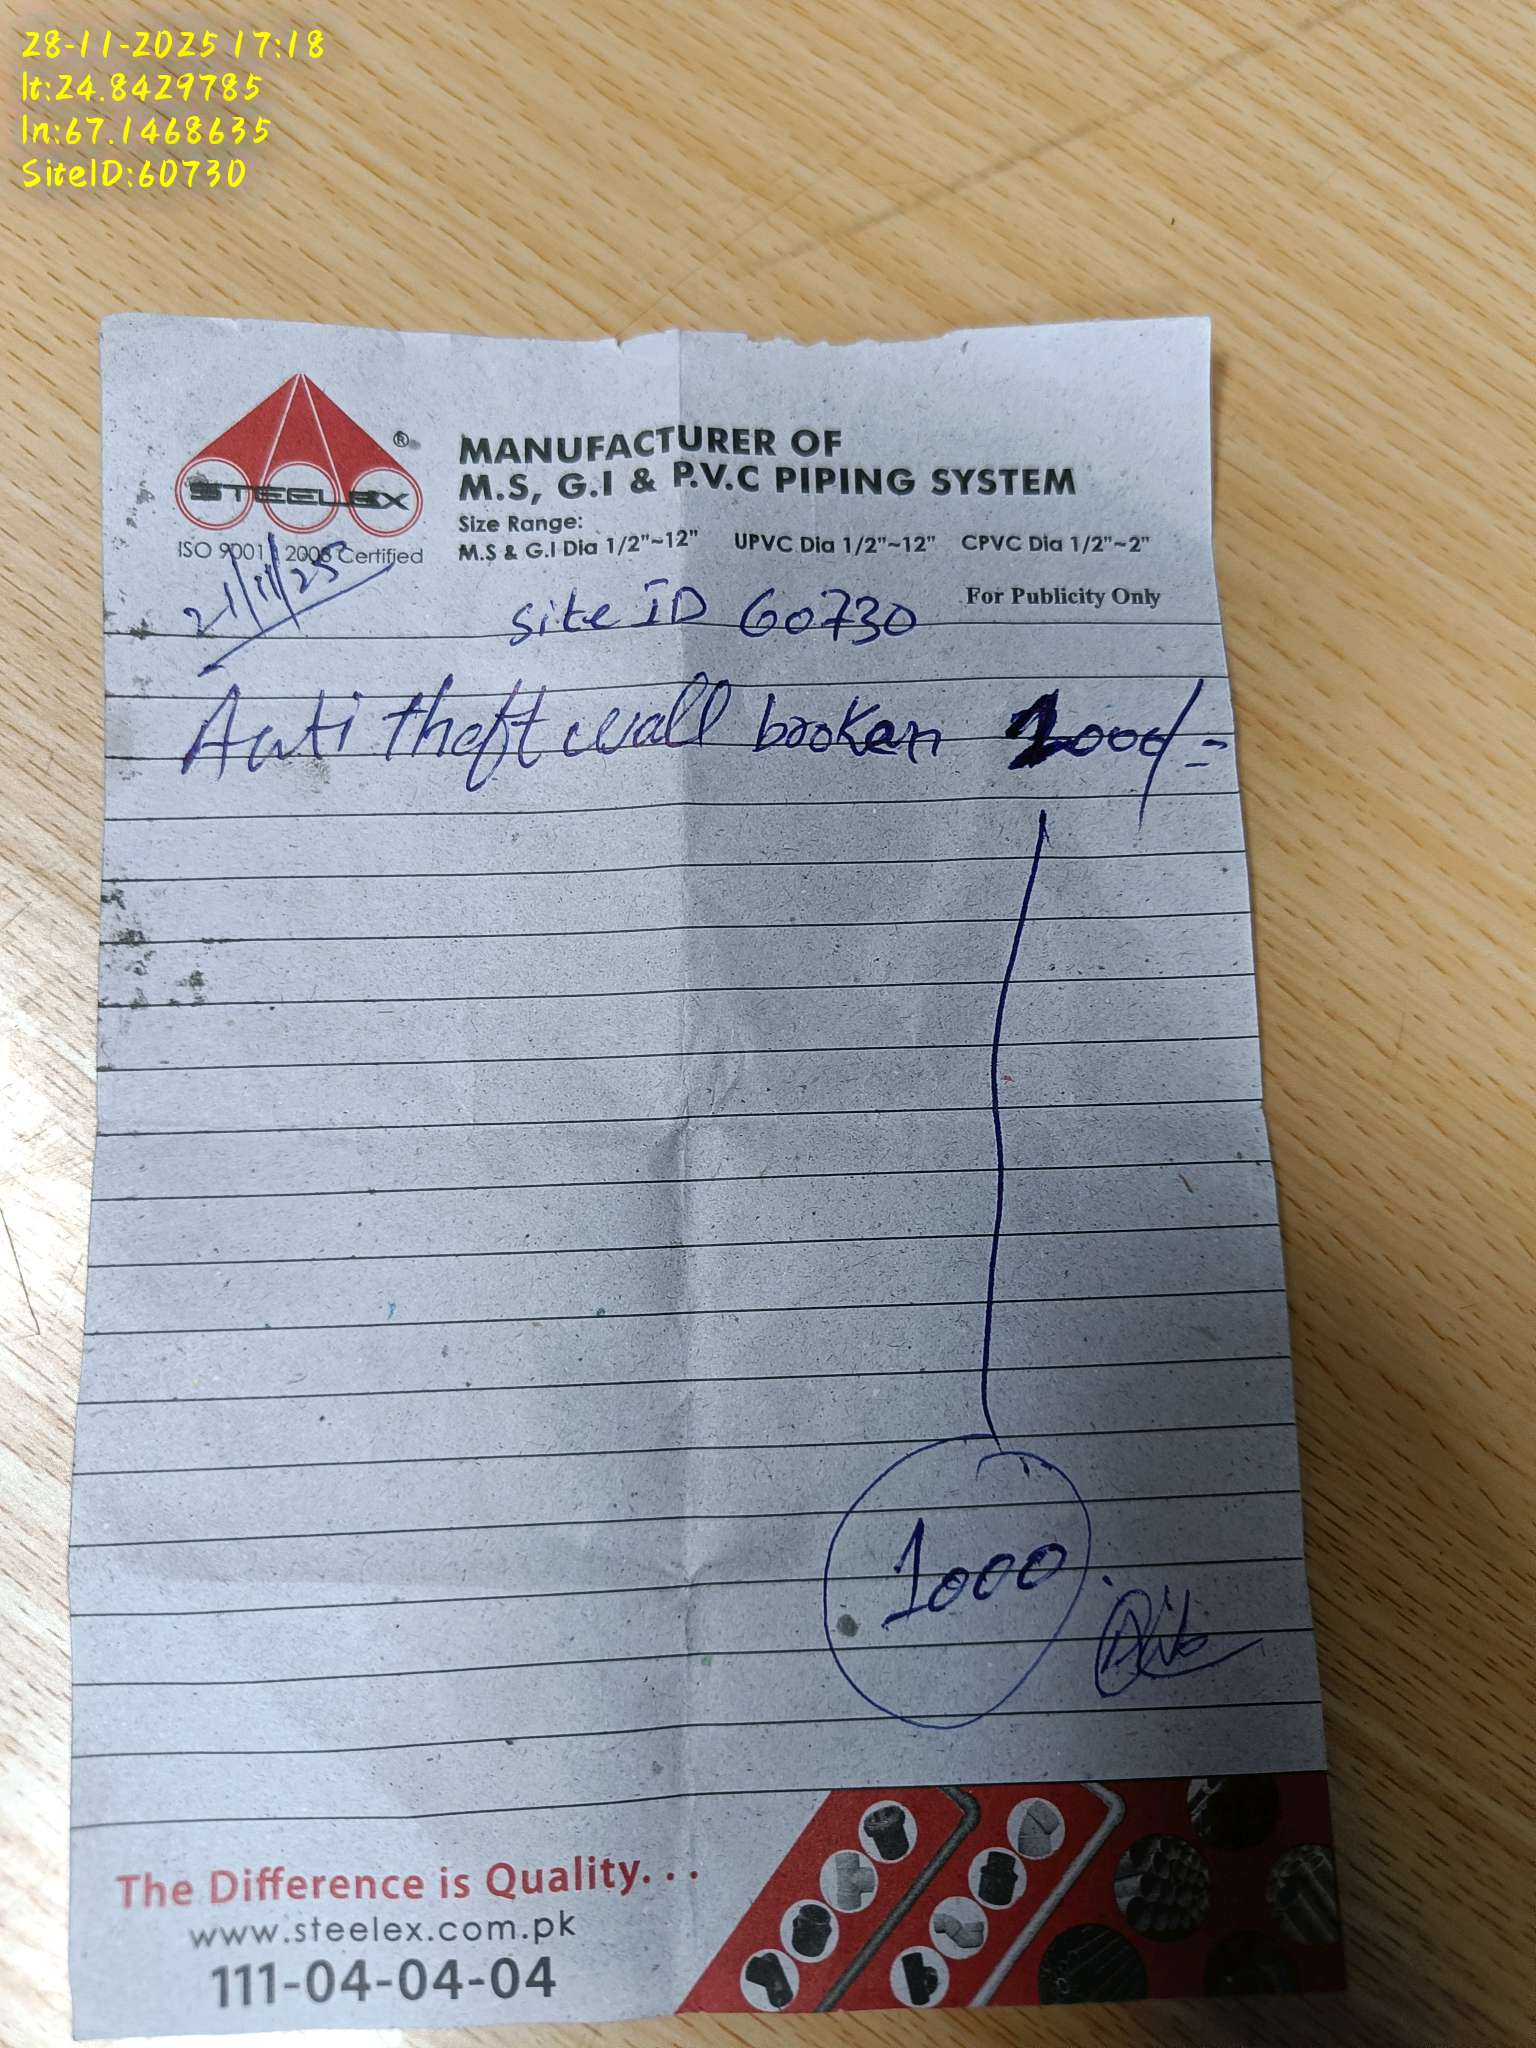 28-11-2025 17:18
lt:24.8429785
ln:67.1468635
SiteID:60730
STEELEX ®
ISO 9001 : 2008 Certified
MANUFACTURER OF
M.S, G.I & P.V.C PIPING SYSTEM
Size Range:
M.S & G.I Dia 1/2"~12" UPVC Dia 1/2"~12" CPVC Dia 1/2"~2"
For Publicity Only
21/11/25
site ID 60730
Anti theft wall broken 1000/=
1000
The Difference is Quality. . .
www.steelex.com.pk
111-04-04-04